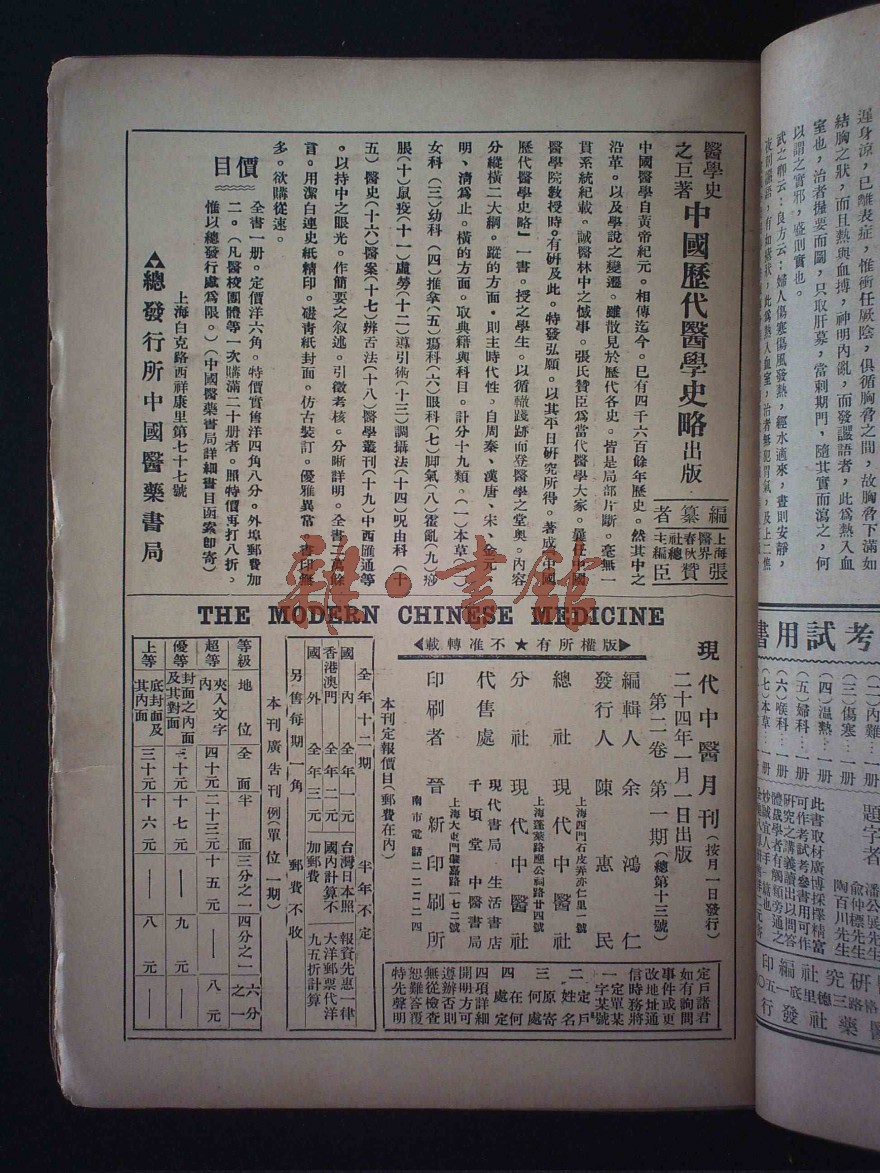 遲身涼，已離表症，惟衝任厥陰，俱循胸脅之間，故胸脅下滿如
結胸之狀，而且熱與血搏，神明內亂，而發讝語者，此爲熱入血
室也，治者握要而圖，只取肝募，當刺期門，隨其實而瀉之，何
以謂之實邪，盛則實也。
考試用書
(二)內難…一册
(三)傷寒…一册
(四)温熱…一册
(五)婦科…一册
(六)喉科…一册
(七)本草…一册
題字者
潘公展先生
俞仲標先生
陶百川先生
此書取材廣博採擇精富
可作考試參考書用可作
研究之講義讀出以問答
醫學史
之巨著
中國歷代醫學史略出版
編纂者
上海
醫界
春秋
社總
主編
張贊臣
中國醫學自黃帝紀元。相傳迄今。已有四千六百餘年歷史。然其中之
沿革。以及學說之變遷。雖散見於歷代各史。皆是局部片斷。毫無一
貫系統紀載。誠醫林中之憾事。張氏贊臣爲當代醫學大家。曩任中國
醫學院教授時。有研及此。特發弘願。以其平日研究所得。著成「中國
歷代醫學史略」一書。授之學生。以循轍踐跡而登醫學之堂奧。內容
分縱橫二大綱。縱的方面。則主時代性。自周秦、漢唐、宋、金元、
明、清爲止。橫的方面。取典籍與科目。計分十九類。(一)本草(二)
女科(三)幼科(四)推拿(五)瘍科(六)眼科(七)脚氣(八)霍亂(九)痧
脹(十)鼠疫(十一)虛勞(十二)導引術(十三)調攝法(十四)呪由科(十
五)醫史(十六)醫案(十七)辨舌法(十八)醫學叢刊(十九)中西匯通等
。以持中之眼光。作簡要之叙述。引徵考核。分晰詳明。全書二萬餘
言。用潔白連史紙精印。磁青紙封面。仿古裝訂。優雅異常。書印無
多。欲購從速。
價目
全書一册。定價洋六角。特價實售洋四角八分。外埠郵費加
二。(凡醫校團體等一次購滿二十册者。照特價再打八折。
惟以總發行處爲限。)(中國醫藥書局詳細書目函索即寄)
上海白克路西祥康里第七十七號
總發行所中國醫藥書局
雜·書館
THE MODERN CHINESE MEDICINE
版權所有★不准轉載
現代中醫月刊(按月一日發行)
二十四年一月一日出版
第二卷 第一期(總第十三號)
編輯人 余鴻仁
發行人 陳惠民
上海西門石皮弄亦仁里一號
總社 現代中醫社
上海蓬萊路應公祠路廿四號
分社 現代中醫社
代售處
現代書局 生活書店
千頃堂 中醫書局
印刷者 晉新印刷所
南市電話二二一二四
定戶諸君
如有詢問
事件或更
改地址通
信時務將
一 定單某
字某號
二 定戶
姓名
三 原寄
何處
四 在何
處定
四項詳細
開明方可
遵辦否則
無從檢查
恕難答覆
特先聲明
本刊定報價目(郵費在內)
全年十二期 半年不定
國內 全年一元 台灣日本照國內計算不加郵費
香港澳門 全年二元
國外 全年三元
報資先惠一律大洋郵票代洋九五折計算
另售每期一角 郵費不收
本刊廣告刊例(單位一期)
等級 地位 全面 半面 三分之一 四分之一 六分之一
超等 夾入文字內 四十元 二十三元 十五元 —— 八元
優等 封面之內面及其對面 三十元 十七元 —— 九元 ——
上等 底封面及其內面 三十元 十六元 —— 八元 ——